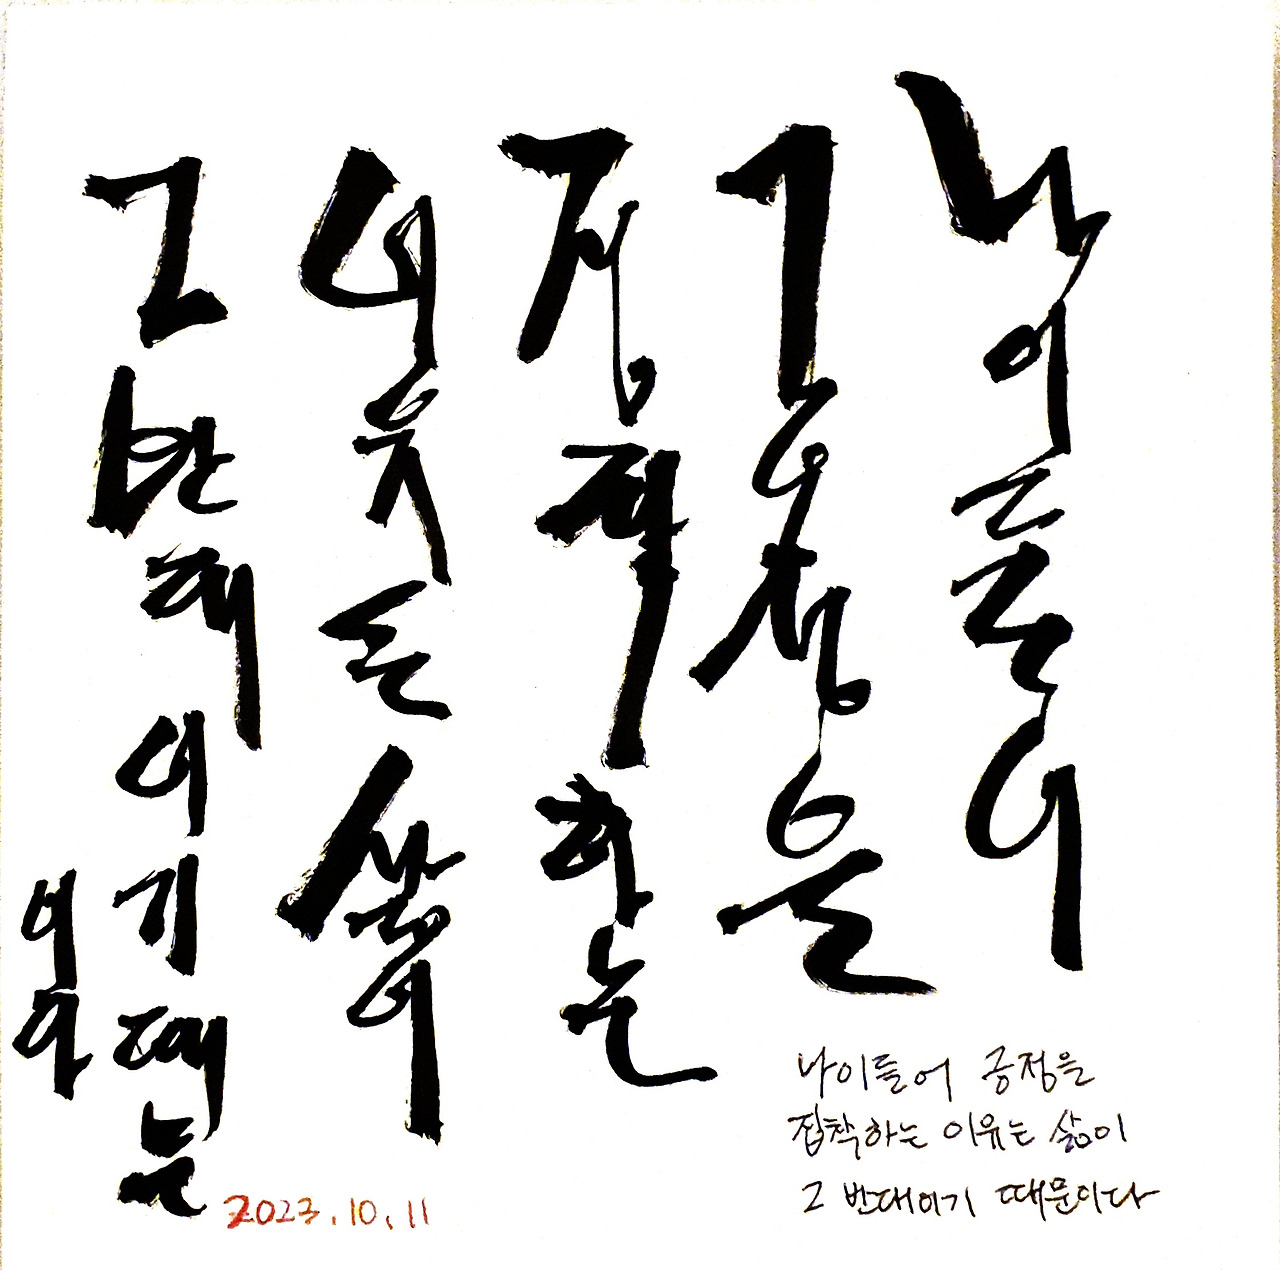 나이들어
긍정을
집착하는
이유는 삶이
그 반대이기 때문
이다
2023.10.11
나이들어 긍정을
집착하는 이유는 삶이
그 반대이기 때문이다